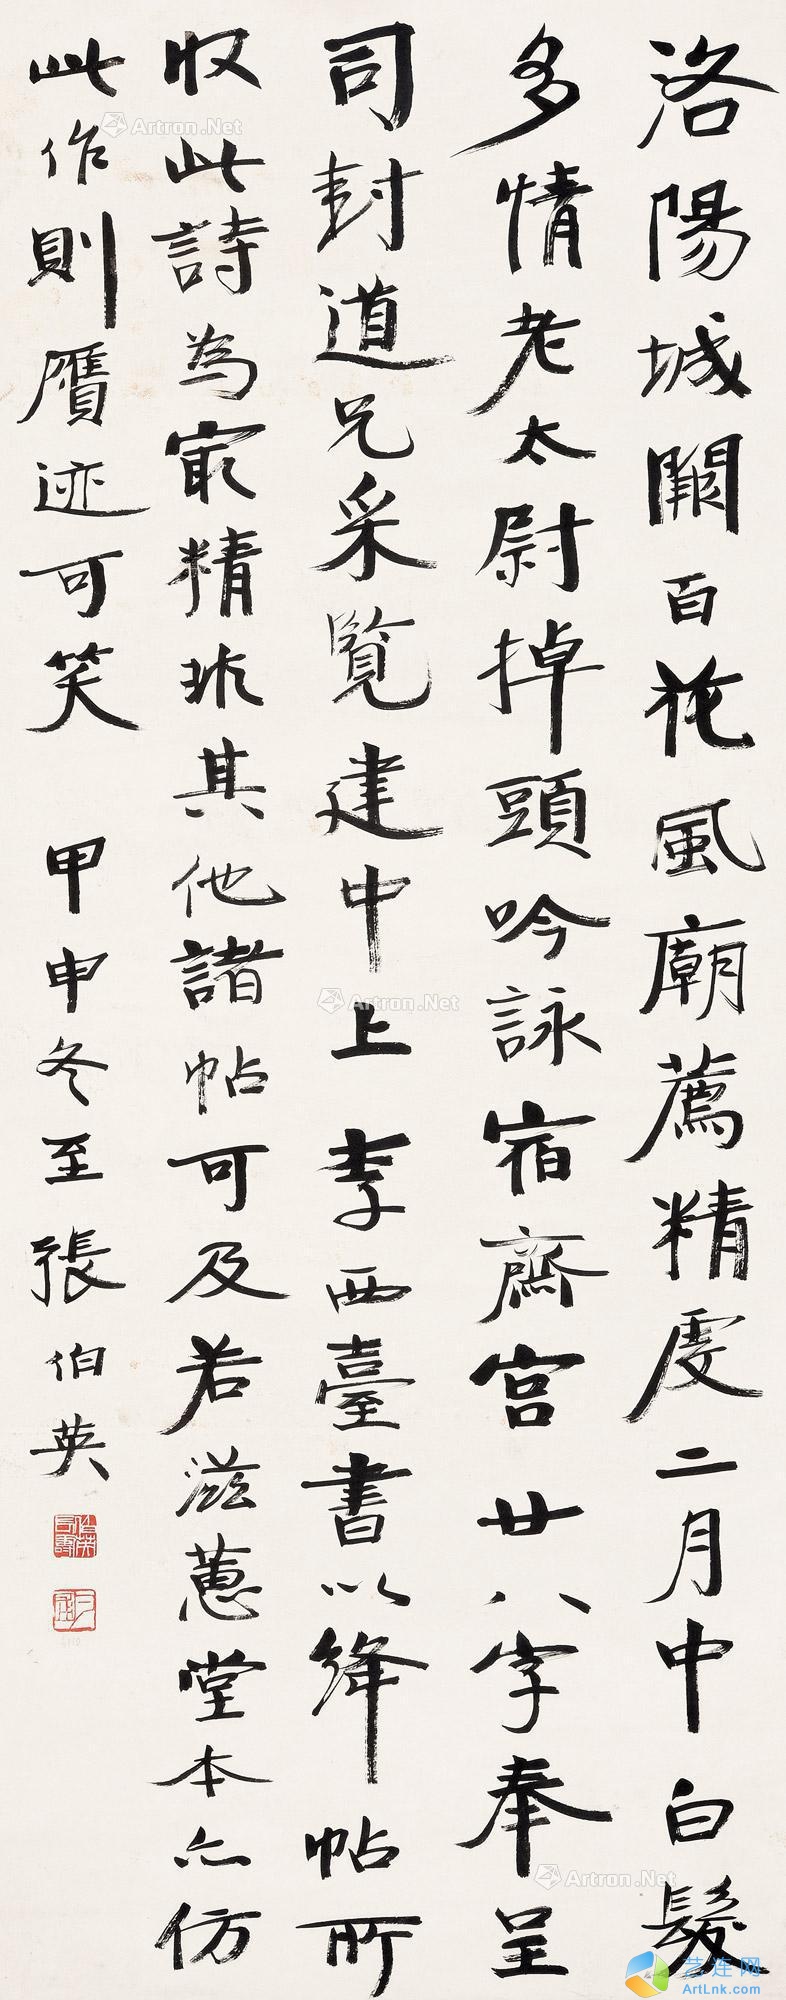 洛陽城闕百花風廟薦精虔二月中白髮
多情老太尉掉頭吟詠宿齋宮廿八字奉呈
司封道兄采覽建中上李西臺書以絳帖所
收此詩為㝡精非其他諸帖可及若滋蕙堂本亦仿
此作則贗迹可笑 甲申冬至張伯英
Artron.Net
Artron.Net
Artron.Net
艺连网
ArtLnk.com